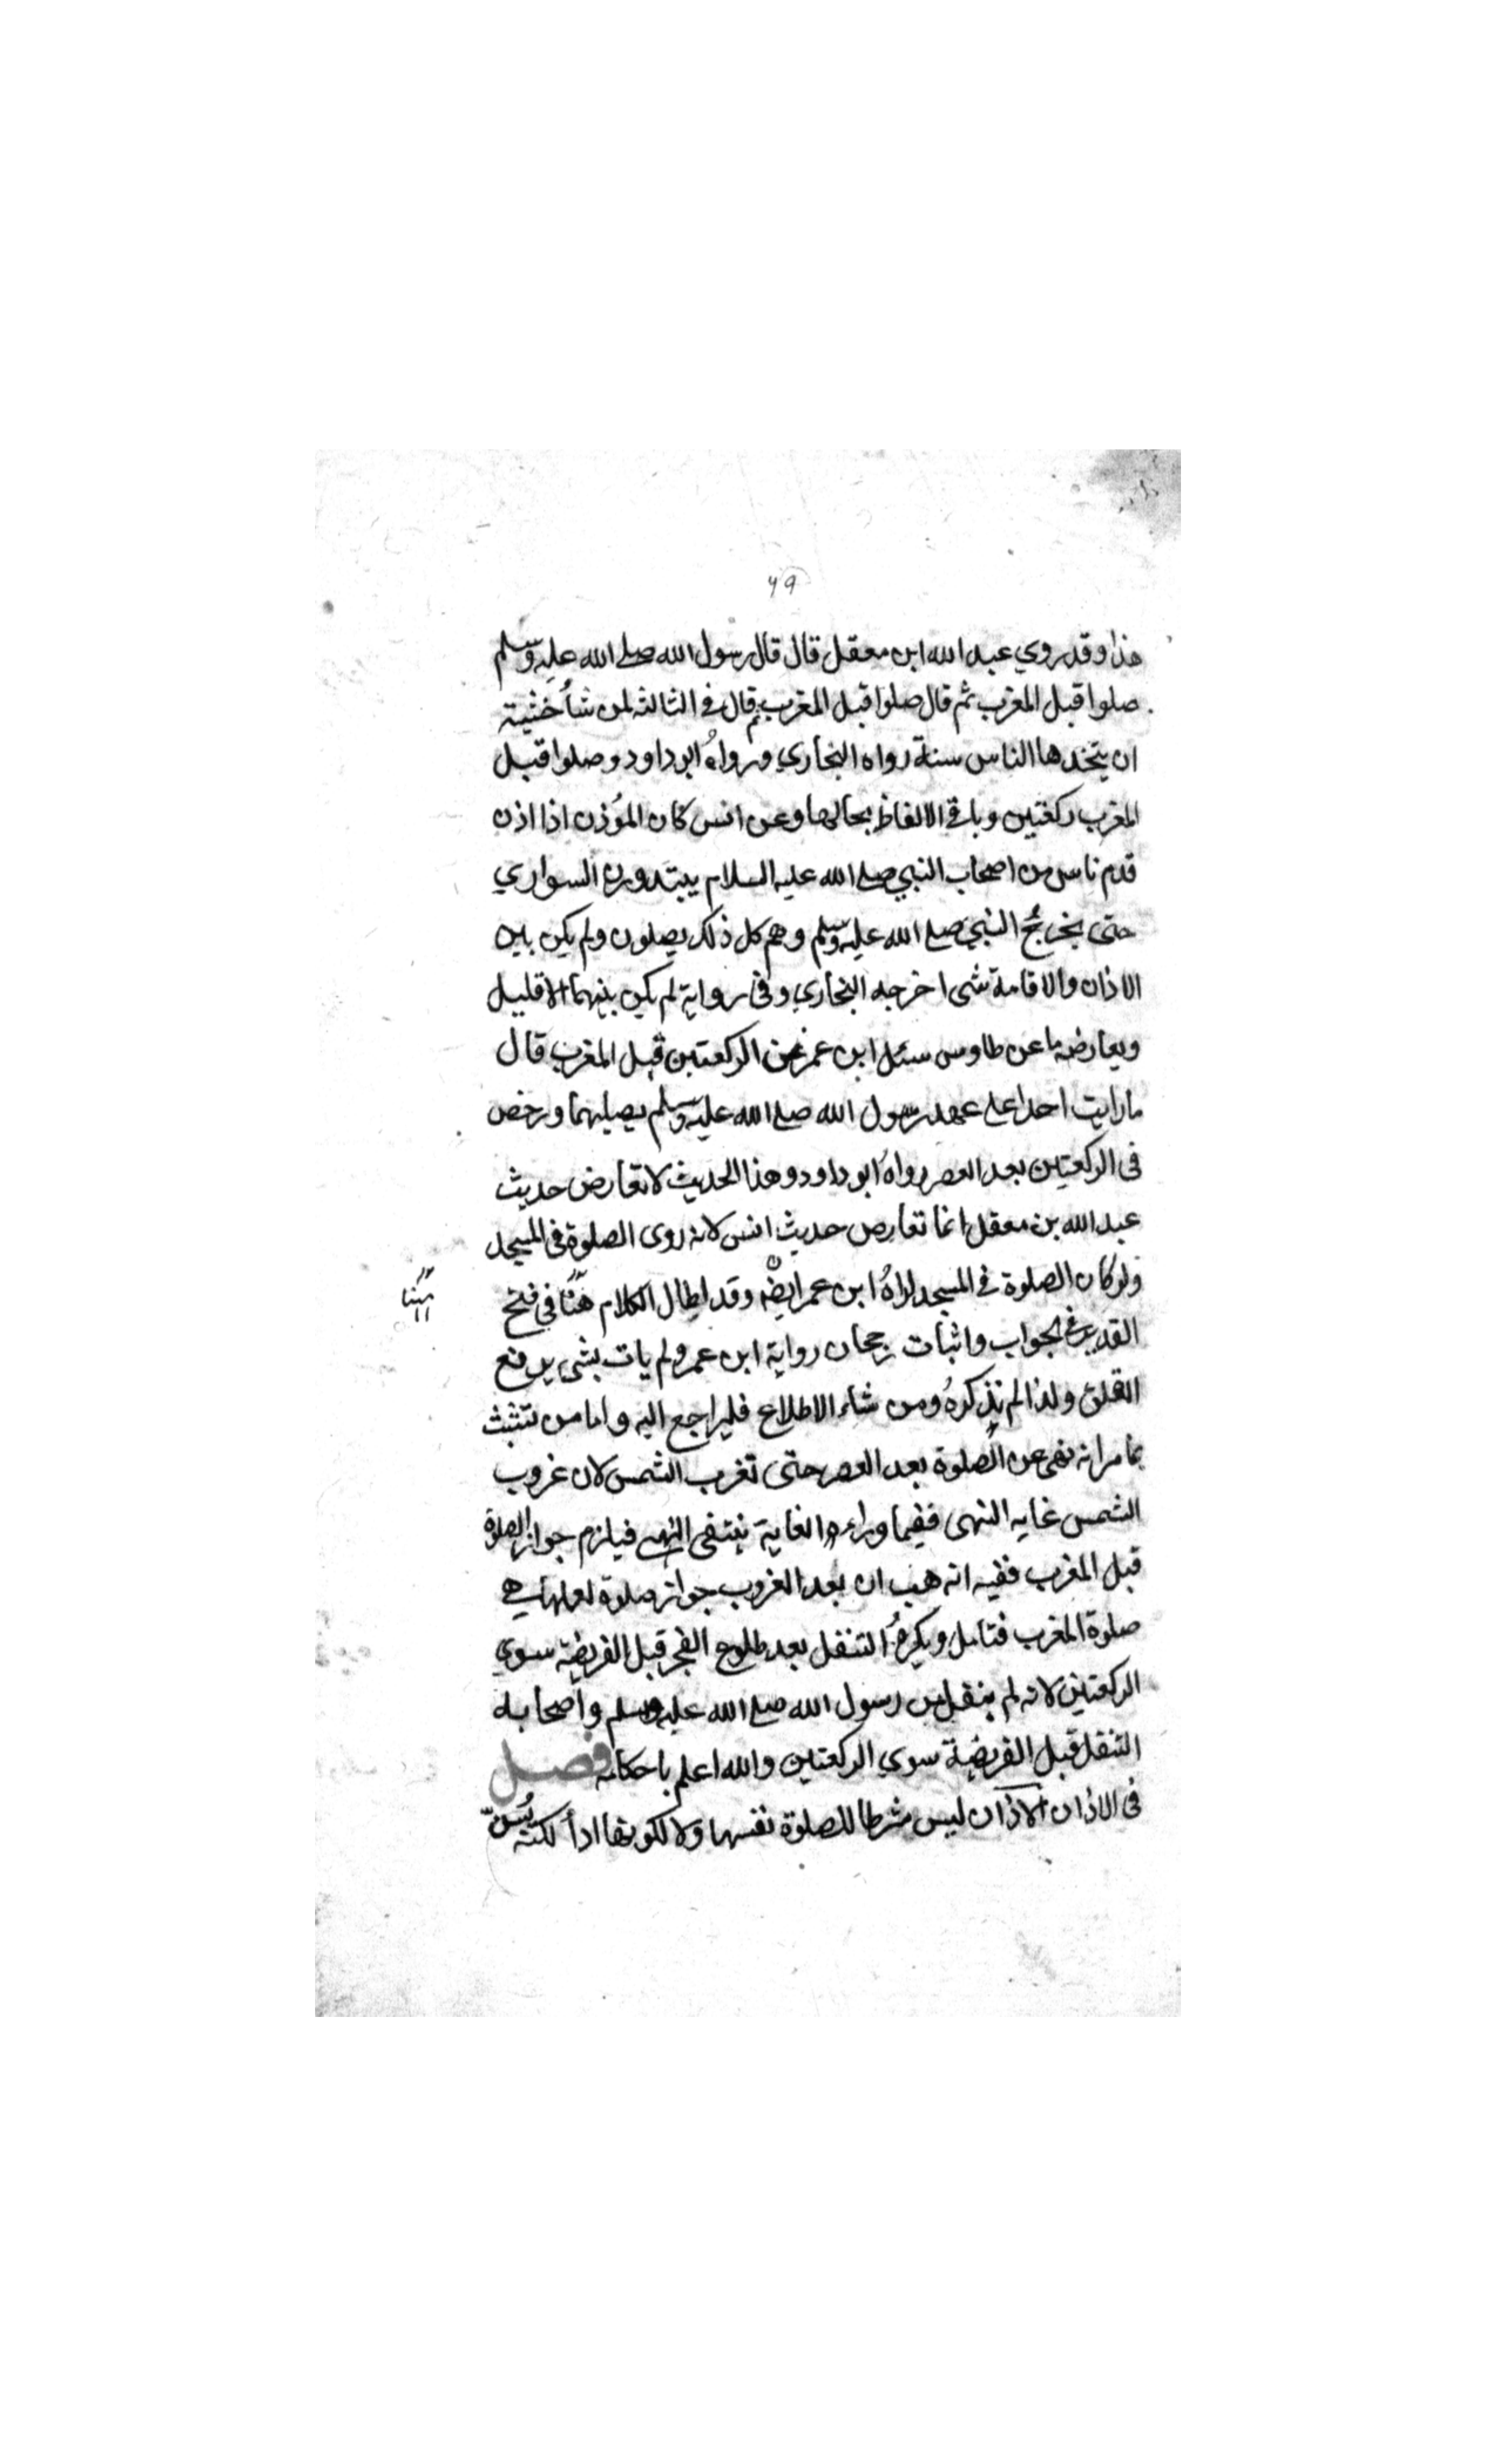 ٦٩
هذا وقد روي عبد الله ابن معقل قال قال رسول الله صلے الله عليه وسلم
صلوا قبل المغرب ثم قال صلوا قبل المغرب ثم قال في الثالثة لمن شأ خشية
ان يتخذها الناس سنة رواه البخاري ورواهُ ابو داود وصلوا قبل
المغرب ركعتين وباقي الالفاظ بحالها وعن انس كان المؤذن اذا اذن
قدم ناس من اصحاب النبي صلے الله عليه السلام يبتدرون السواري
حتى يخرج النبي صلے الله عليه وسلم وهم كل ذلك يصلون ولم يكن بين
الاذان والاقامة شى اخرجه البخاري وفى رواية لم يكن بينهما الا قليل
ويعارضه ما عن طاوس سئل ابن عمر عن الركعتين قبل المغرب قال
ما رايت احدا علے عهد رسول الله صلے الله عليه وسلم يصليهما ورخص
فى الركعتين بعد العصر رواهُ ابو داود وهذا الحديث لا تعارض حديث
عبد الله بن معقل انما تعارض حديث انس لانه روى الصلوة فى المسجد
ولو كان الصلوة في المسجد لراهُ ابن عمر ايضا وقد اطال الكلام هنا في فتح
ههنا
القدير في الجواب واثبات رجحان رواية ابن عمر ولم يات بشى يرفع
القلق ولذا لم نذكرهُ ومن شاء الاطلاع فليراجع اليه واما من تشبث
بما مر انه نهى عن الصلوة بعد العصر حتى تغرب الشمس لان غروب
الشمس غايه النهى ففيما وراء الغاية ينتفى النهے فيلزم جواز الصلوة
قبل المغرب ففيه انه هب ان بعد الغروب جواز صلوة لعلها هے
صلوة المغرب فتامل ويكرهُ التنفل بعد طلوع الفجر قبل الفريضة سوي
الركعتين لانه لم ينقل من رسول الله صلے الله عليه وسلم واصحابه
التنفل قبل الفريضة سوي الركعتين والله اعلم باحكامه فصل
فى الاذان الاذان ليس شرطا للصلوة نفسها ولا لكونها ادأ لكنه يُسنّ